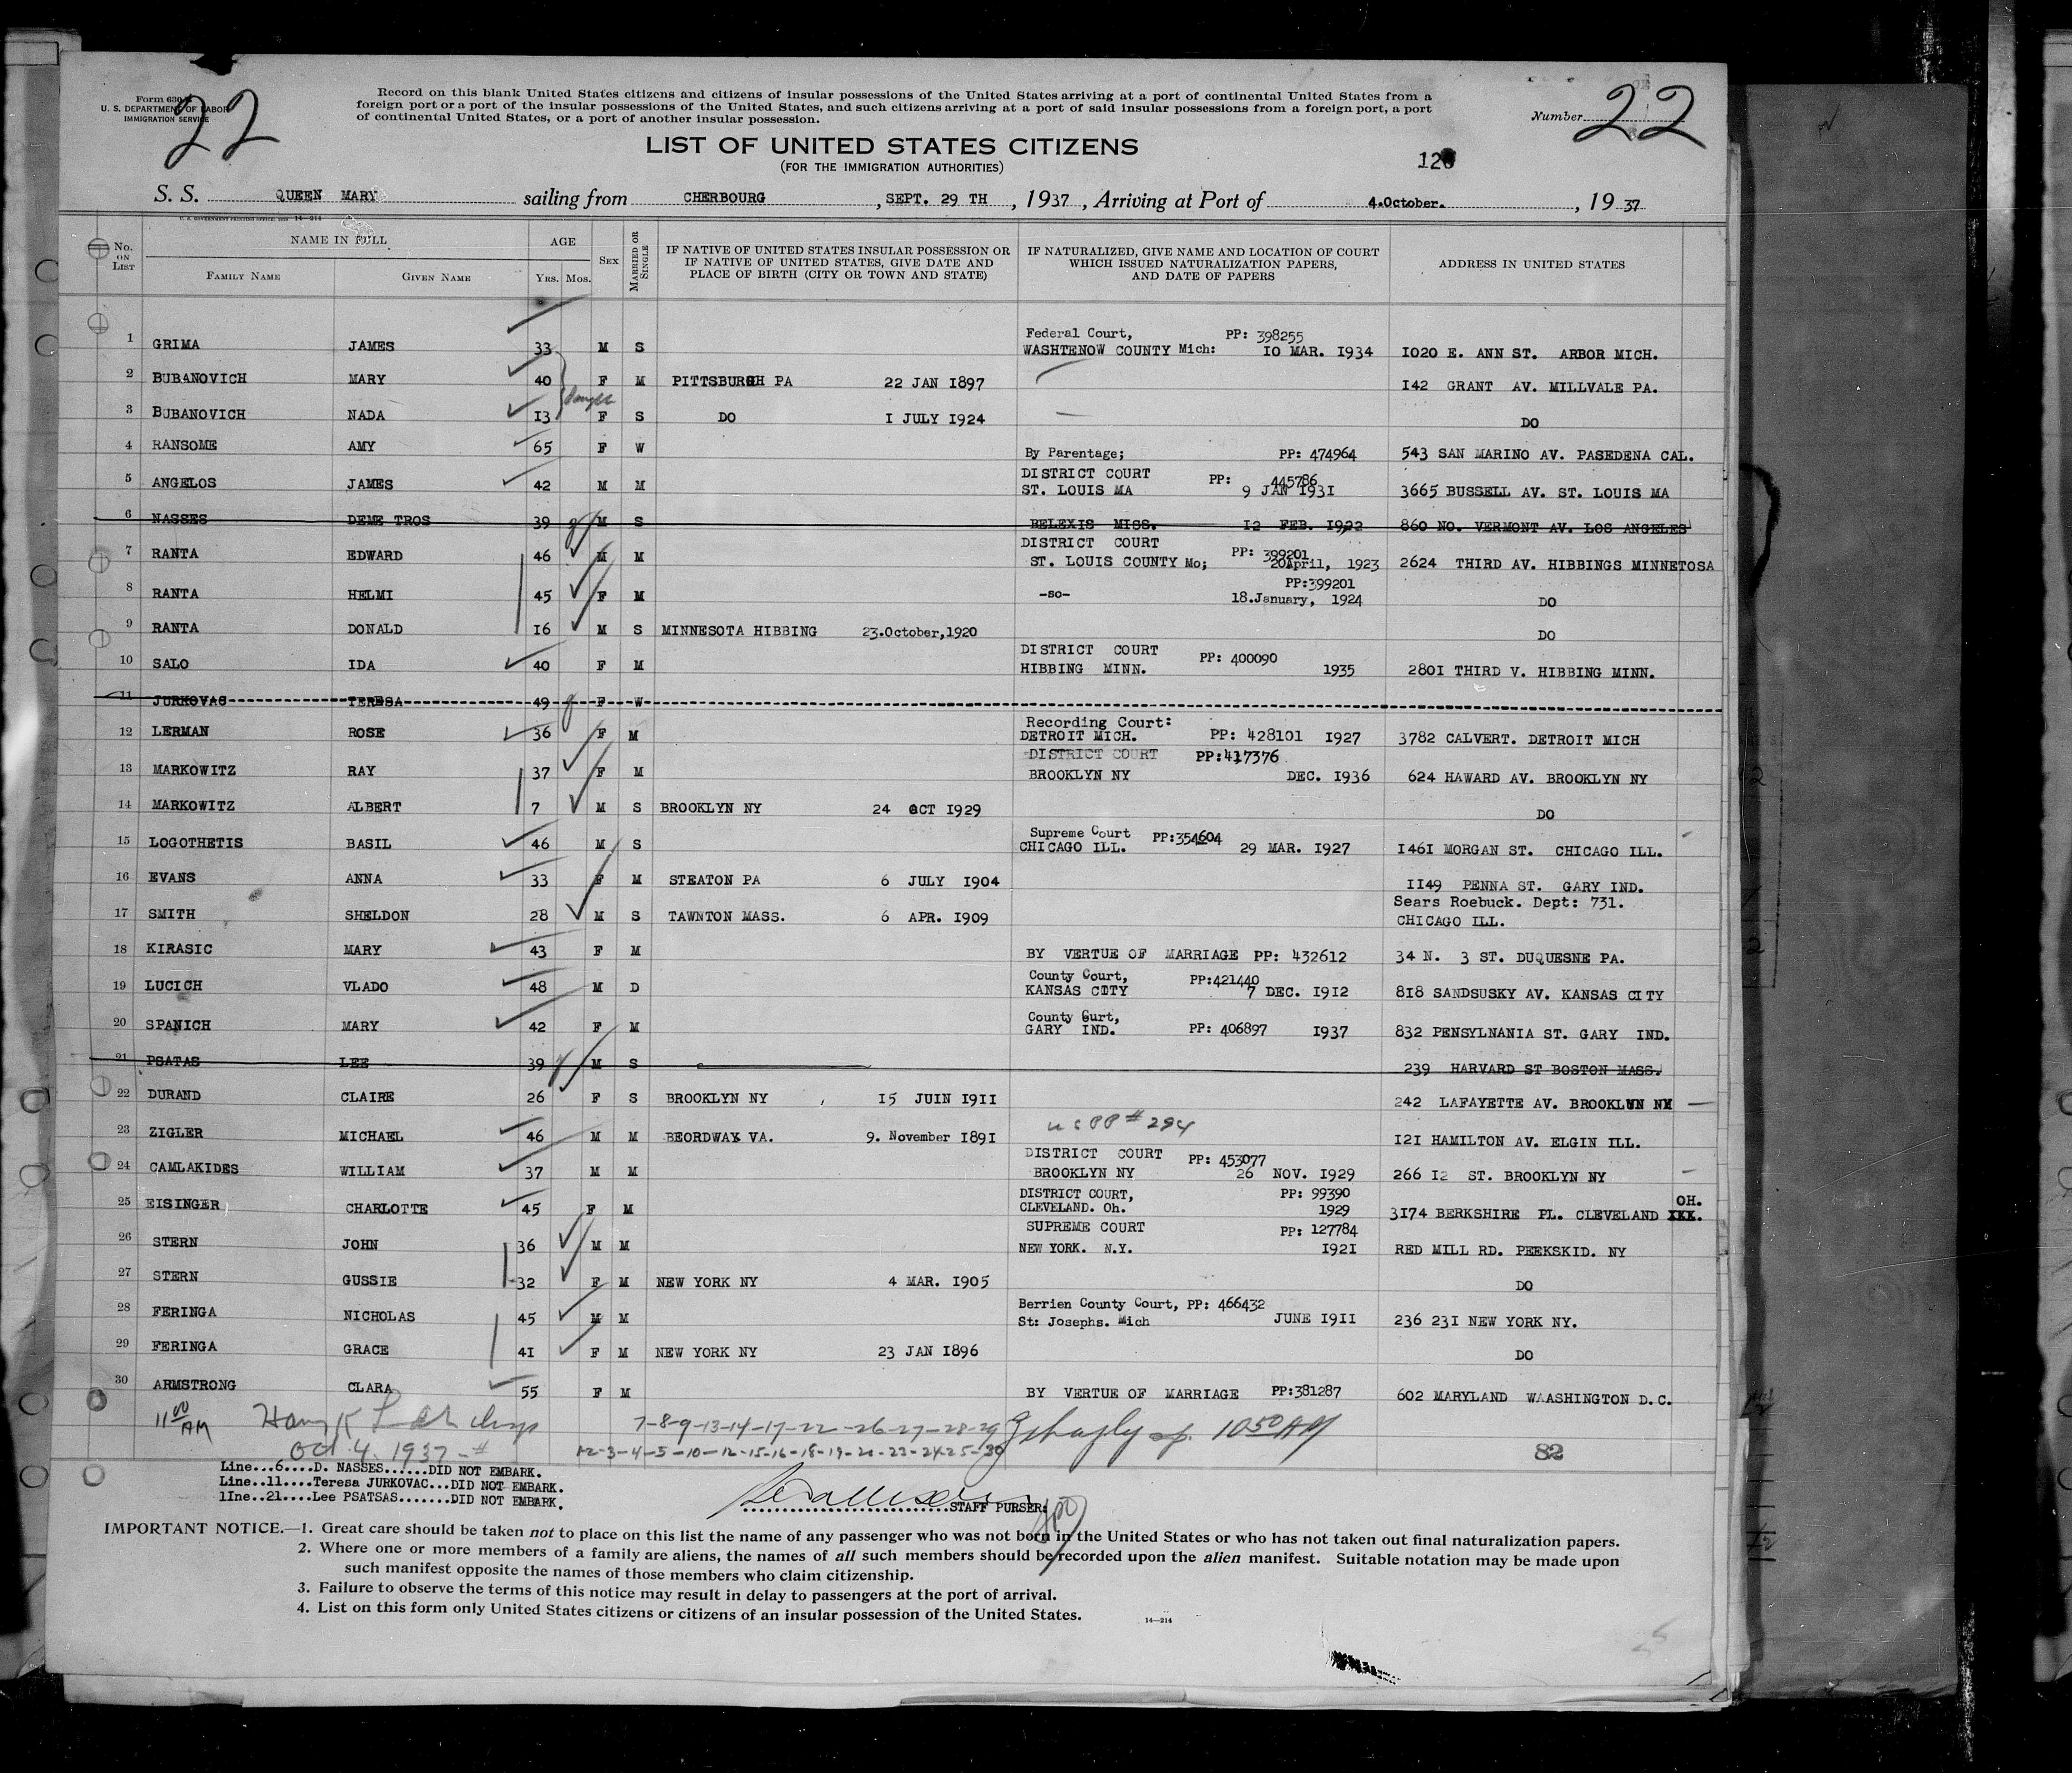 Form 630
U. S. DEPARTMENT OF LABOR
IMMIGRATION SERVICE
22
Record on this blank United States citizens and citizens of insular possessions of the United States arriving at a port of continental United States from a
foreign port or a port of the insular possessions of the United States, and such citizens arriving at a port of said insular possessions from a foreign port, a port
of continental United States, or a port of another insular possession.
Number 22
LIST OF UNITED STATES CITIZENS
(FOR THE IMMIGRATION AUTHORITIES)
S. S. QUEEN MARY sailing from CHERBOURG, SEPT. 29 TH, 1937, Arriving at Port of 4.October., 19 37
U. S. GOVERNMENT PRINTING OFFICE 14—214
No. ON LIST NAME IN FULL AGE SEX MARRIED OR SINGLE IF NATIVE OF UNITED STATES INSULAR POSSESSION OR IF NATIVE OF UNITED STATES, GIVE DATE AND PLACE OF BIRTH (CITY OR TOWN AND STATE) IF NATURALIZED, GIVE NAME AND LOCATION OF COURT WHICH ISSUED NATURALIZATION PAPERS, AND DATE OF PAPERS ADDRESS IN UNITED STATES
FAMILY NAME GIVEN NAME YRS. MOS.
Federal Court, PP: 398255
1 GRIMA JAMES 33 M S WASHTENOW COUNTY Mich: 10 MAR. 1934 1020 E. ANN ST. ARBOR MICH.
2 BUBANOVICH MARY 40 F M PITTSBURGH PA 22 JAN 1897 142 GRANT AV. MILLVALE PA.
3 BUBANOVICH NADA 13 F S DO 1 JULY 1924 DO
4 RANSOME AMY 65 F W By Parentage; PP: 474964 543 SAN MARINO AV. PASEDENA CAL.
DISTRICT COURT PP: 445786
5 ANGELOS JAMES 42 M M ST. LOUIS MA 9 JAN 1931 3665 BUSSELL AV. ST. LOUIS MA
6 NASSES DEME TROS 39 M S BELEXIS MISS. 12 FEB. 1922 860 NO. VERMONT AV. LOS ANGELES
DISTRICT COURT PP: 399201
7 RANTA EDWARD 46 M M ST. LOUIS COUNTY Mo; 20April, 1923 2624 THIRD AV. HIBBINGS MINNETOSA
PP:399201
8 RANTA HELMI 45 F M -so- 18.January, 1924 DO
9 RANTA DONALD 16 M S MINNESOTA HIBBING 23.October,1920 DO
DISTRICT COURT PP: 400090
10 SALO IDA 40 F M HIBBING MINN. 1935 2801 THIRD V. HIBBING MINN.
11 JURKOVAC TERESA 49 F W
Recording Court:
12 LERMAN ROSE 36 F M DETROIT MICH. PP: 428101 1927 3782 CALVERT. DETROIT MICH
DISTRICT COURT PP:417376
13 MARKOWITZ RAY 37 F M BROOKLYN NY DEC. 1936 624 HAWARD AV. BROOKLYN NY
14 MARKOWITZ ALBERT 7 M S BROOKLYN NY 24 OCT 1929 DO
Supreme Court PP:354604
15 LOGOTHETIS BASIL 46 M S CHICAGO ILL. 29 MAR. 1927 1461 MORGAN ST. CHICAGO ILL.
16 EVANS ANNA 33 F M STEATON PA 6 JULY 1904 1149 PENNA ST. GARY IND.
Sears Roebuck. Dept: 731.
17 SMITH SHELDON 28 M S TAWNTON MASS. 6 APR. 1909 CHICAGO ILL.
18 KIRASIC MARY 43 F M BY VERTUE OF MARRIAGE PP: 432612 34 N. 3 ST. DUQUESNE PA.
County Court, PP:421440
19 LUCICH VLADO 48 M D KANSAS CITY 7 DEC. 1912 818 SANDSUSKY AV. KANSAS CITY
County Curt,
20 SPANICH MARY 42 F M GARY IND. PP: 406897 1937 832 PENSYLNANIA ST. GARY IND.
21 PSATAS LEE 39 M S 239 HARVARD ST BOSTON MASS.
22 DURAND CLAIRE 26 F S BROOKLYN NY 15 JUIN 1911 242 LAFAYETTE AV. BROOKLYN NY
23 ZIGLER MICHAEL 46 M M BEORDWAY VA. 9. November 1891 US PP # 294 121 HAMILTON AV. ELGIN ILL.
DISTRICT COURT PP: 453077
24 CAMLAKIDES WILLIAM 37 M M BROOKLYN NY 26 NOV. 1929 266 12 ST. BROOKLYN NY
DISTRICT COURT, PP: 99390 OH.
25 EISINGER CHARLOTTE 45 F M CLEVELAND. Oh. 1929 3174 BERKSHIRE PL. CLEVELAND XXX.
SUPREME COURT PP: 127784
26 STERN JOHN 36 M M NEW YORK. N.Y. 1921 RED MILL RD. PEEKSKID. NY
27 STERN GUSSIE 32 F M NEW YORK NY 4 MAR. 1905 DO
Berrien County Court, PP: 466432
28 FERINGA NICHOLAS 45 M M St: Josephs. Mich JUNE 1911 236 231 NEW YORK NY.
29 FERINGA GRACE 41 F M NEW YORK NY 23 JAN 1896 DO
30 ARMSTRONG CLARA 55 F M BY VERTUE OF MARRIAGE PP:381287 602 MARYLAND WAASHINGTON D.C.
11 00 AM 7-8-9-13-14-17-22-26-27-28-29 10 50 AM
Oct. 4. 1937 82
Line...6....D. NASSES......DID NOT EMBARK.
Line..11....Teresa JURKOVAC...DID NOT EMBARK.
lIne..21....Lee PSATSAS.......DID NOT EMBARK.
STAFF PURSER.
IMPORTANT NOTICE.—1. Great care should be taken not to place on this list the name of any passenger who was not born in the United States or who has not taken out final naturalization papers.
2. Where one or more members of a family are aliens, the names of all such members should be recorded upon the alien manifest. Suitable notation may be made upon
such manifest opposite the names of those members who claim citizenship.
3. Failure to observe the terms of this notice may result in delay to passengers at the port of arrival.
4. List on this form only United States citizens or citizens of an insular possession of the United States.
14—214